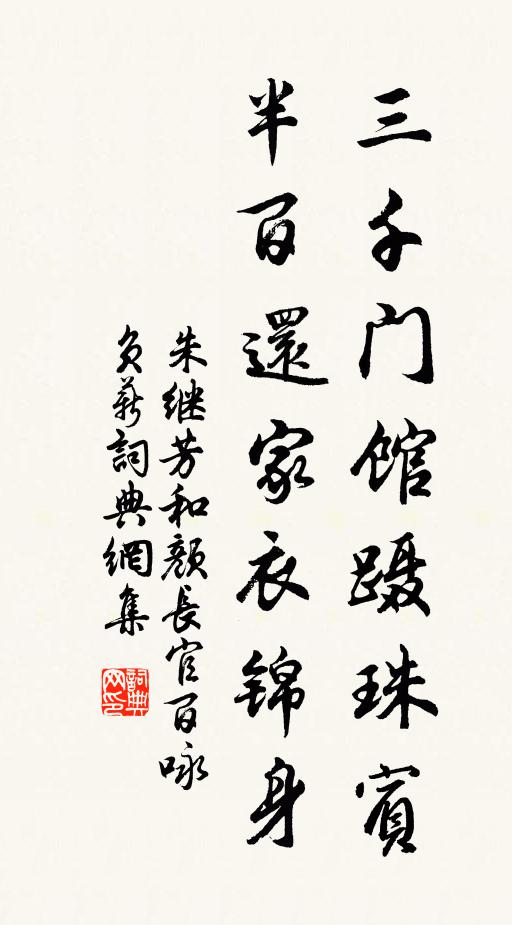 三千门馆蹑珠宾
半百還家衣锦身
朱继芳和顏長官百咏
負薪詞典網集
詞典网印